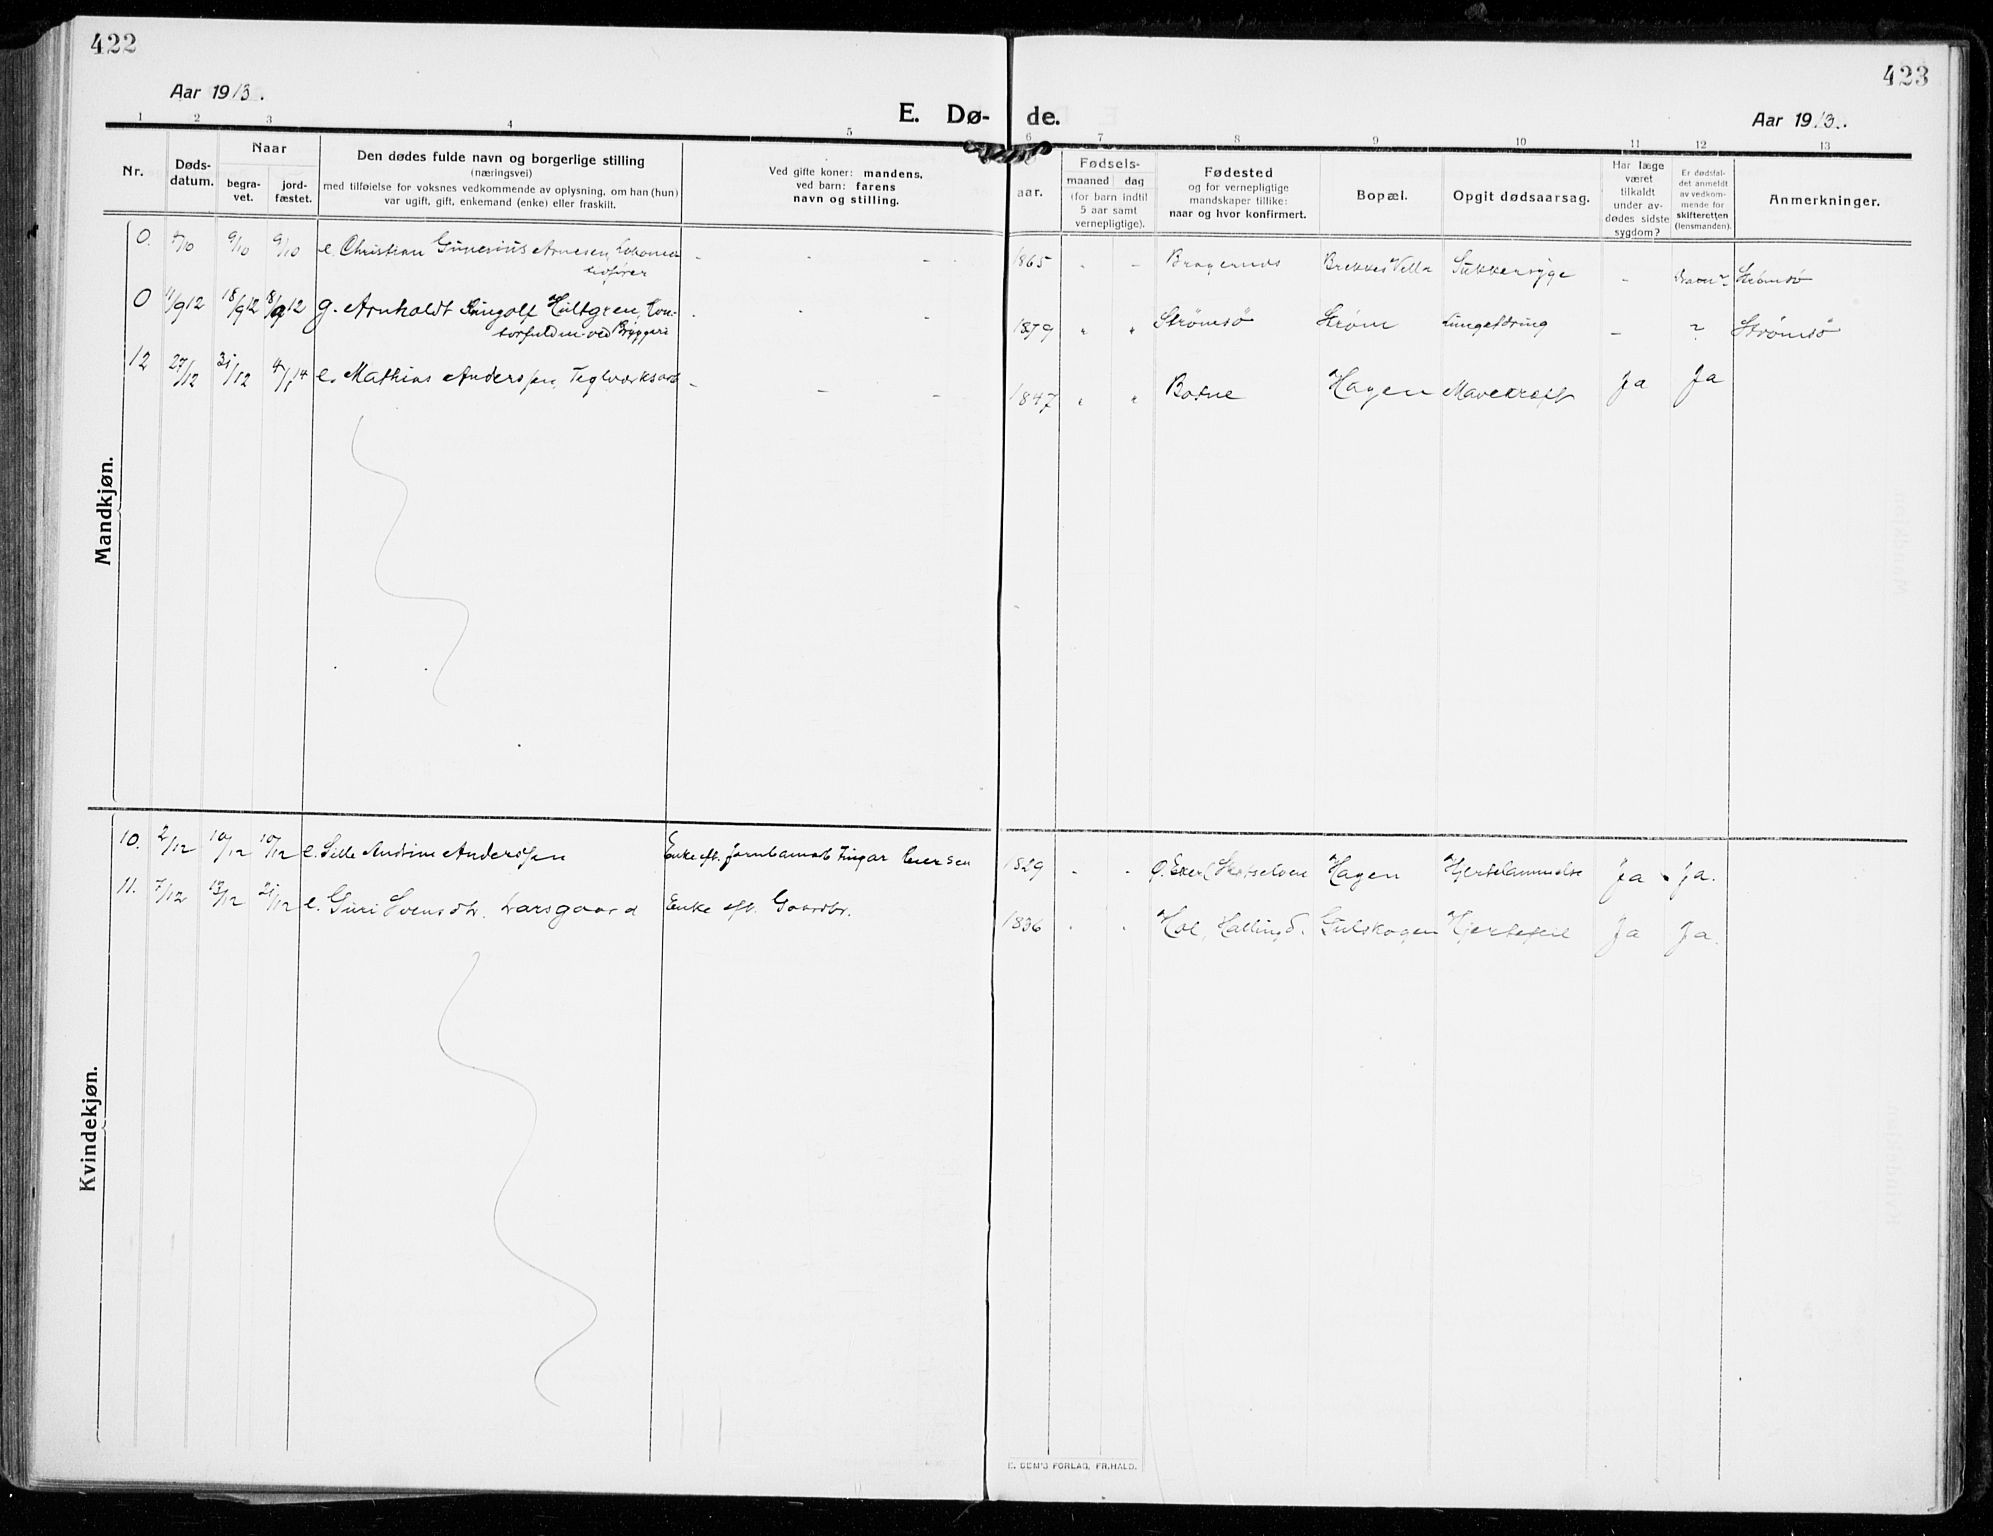 422
423
Aar 1913.
E. Dø- de.
Aar 1913.
1 2 3 4 5 6 7 8 9 10 11 12 13
Nr.
Døds-
datum.
Naar
begra-
vet.
jord-
fæstet.
Den dødes fulde navn og borgerlige stilling
(næringsvei)
med tilføielse for voksnes vedkommende av oplysning, om han (hun)
var ugift, gift, enkemand (enke) eller fraskilt.
Ved gifte koner: mandens,
ved barn: farens
navn og stilling.
aar.
Fødsels-
maaned dag
(for barn indtil
5 aar samt
vernepligtige).
Fødested
og for vernepligtige
mandskaper tillike:
naar og hvor konfirmert.
Bopæl.
Opgit dødsaarsag.
Har læge
været
tilkaldt
under av-
dødes sidste
sygdom?
Er dødsfal-
det anmeldt
av vedkom-
mende for
skifteretten
(lensmanden).
Anmerkninger.
Mandkjøn.
0. 9/10 9/10 e. Christian Gunerius Arnesen, - - 1865 - - Bragernes Brekkes Villa Sukkersyge - Strømsø
0 11/9 12 18/9 12 18/9 12 g. Arnholdt Hultgren, Kon-
torfuldm. ved Bryggeri - - - 1879 " " Strømsö Strøm - ? Strømsö
12 27/12 31/12 4/1 14 e. Mathias Anderssen, Teglværksarb. - - - 1847 " " Botne Hagen Mavekræft Ja Ja
Kvindekjøn.
10. 2/12 10/12 10/12 e. Andrine Anderssen Enke eft. 1829 " " Ø. Eker (Skotselven Hagen Ja Ja.
11. 7/12 13/12 21/12 e. Guri Svensdtr. Larsgaard Enke eft. Gaardbr. 1836 " " Hol, Hallingd. Gulskogen Hjertefeil Ja Ja.
E. SEM'S FORLAG, FR.HALD.